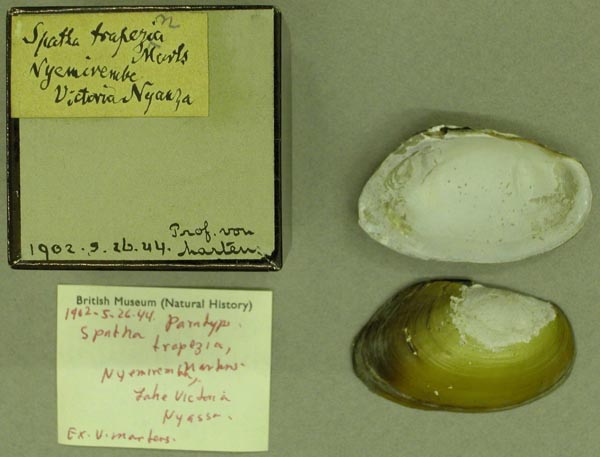 Spatha trapezia
n
Marts
Nyemirembe
Victoria Nyanza
Prof. von
1902.5.26.44. Martens
British Museum (Natural History)
1902-5-26-44. Paratyp.
Spatha trapezia,
Martens.
Nyemirembe,
Lake Victoria
Nyassa.
Ex. V. Martens.